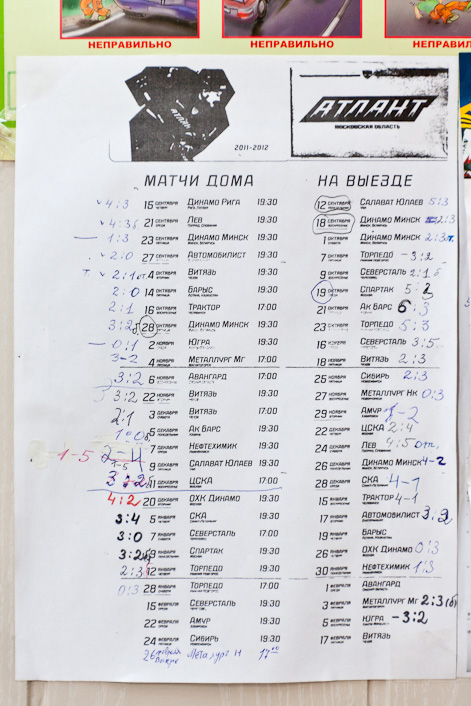 НЕПРАВИЛЬНО НЕПРАВИЛЬНО НЕПРАВИЛЬ
АТЛАНТ
МОСКОВСКАЯ ОБЛАСТЬ
2011-2012
МАТЧИ ДОМА
4:3 15 СЕНТЯБРЯ ДИНАМО РИГА 19:30
4:3б 21 СЕНТЯБРЯ ЛЕВ 19:30
1:3 23 СЕНТЯБРЯ ДИНАМО МИНСК 19:30
2:0 27 СЕНТЯБРЯ АВТОМОБИЛИСТ 19:30
2:1от. 4 ОКТЯБРЯ ВИТЯЗЬ 19:30
2:0 14 ОКТЯБРЯ БАРЫС 19:30
2:1 16 ОКТЯБРЯ ТРАКТОР 17:00
3:2 28 ОКТЯБРЯ ДИНАМО МИНСК 19:30
0:1 2 НОЯБРЯ ЮГРА 19:30
3-2 4 НОЯБРЯ МЕТАЛЛУРГ МГ 17:00
3:2 6 НОЯБРЯ АВАНГАРД 17:00
3:2 22 НОЯБРЯ ВИТЯЗЬ 19:30
2:1 3 ДЕКАБРЯ ВИТЯЗЬ 17:00
1:0б 5 ДЕКАБРЯ АК БАРС 19:30
1-5 2-4 7 ДЕКАБРЯ НЕФТЕХИМИК 19:30
1-5 9 ДЕКАБРЯ САЛАВАТ ЮЛАЕВ 19:30
3:2 11 ДЕКАБРЯ ЦСКА 17:00
4:2 20 ДЕКАБРЯ ОХК ДИНАМО 19:30
3:4 5 ЯНВАРЯ СКА 19:30
3:0 7 ЯНВАРЯ СЕВЕРСТАЛЬ 17:00
3:2 9 ЯНВАРЯ СПАРТАК 19:30
2:3 12 ЯНВАРЯ ТОРПЕДО 19:30
0:3 28 ЯНВАРЯ ТОРПЕДО 17:00
15 ФЕВРАЛЯ СЕВЕРСТАЛЬ 19:30
22 ФЕВРАЛЯ АМУР 19:30
24 ФЕВРАЛЯ СИБИРЬ 19:30
26 17 00
НА ВЫЕЗДЕ
12 СЕНТЯБРЯ САЛАВАТ ЮЛАЕВ 5:3
18 СЕНТЯБРЯ ДИНАМО МИНСК 2:3
1 ОКТЯБРЯ ДИНАМО МИНСК 2:3
7 ОКТЯБРЯ ТОРПЕДО -3:2
9 ОКТЯБРЯ СЕВЕРСТАЛЬ 2:1б
19 ОКТЯБРЯ СПАРТАК 5:2
21 ОКТЯБРЯ АК БАРС 6:3
23 ОКТЯБРЯ ТОРПЕДО 5:3
16 НОЯБРЯ СЕВЕРСТАЛЬ 3:5
18 НОЯБРЯ ВИТЯЗЬ 2:3
25 НОЯБРЯ СИБИРЬ 2:3
27 НОЯБРЯ МЕТАЛЛУРГ НК 0:3
29 НОЯБРЯ АМУР 1-2
22 ДЕКАБРЯ ЦСКА 2:4
24 ДЕКАБРЯ ЛЕВ 4:5от.
26 ДЕКАБРЯ ДИНАМО МИНСК 4-2
28 ДЕКАБРЯ СКА 4-1
15 ЯНВАРЯ ТРАКТОР 4-1
17 ЯНВАРЯ АВТОМОБИЛИСТ 3:2
19 ЯНВАРЯ БАРЫС
26 ЯНВАРЯ ОХК ДИНАМО 0:3
30 ЯНВАРЯ НЕФТЕХИМИК 1:3
1 ФЕВРАЛЯ АВАНГАРД
3 ФЕВРАЛЯ МЕТАЛЛУРГ МГ 2:3(б)
5 ФЕВРАЛЯ ЮГРА -3:2
17 ФЕВРАЛЯ ВИТЯЗЬ